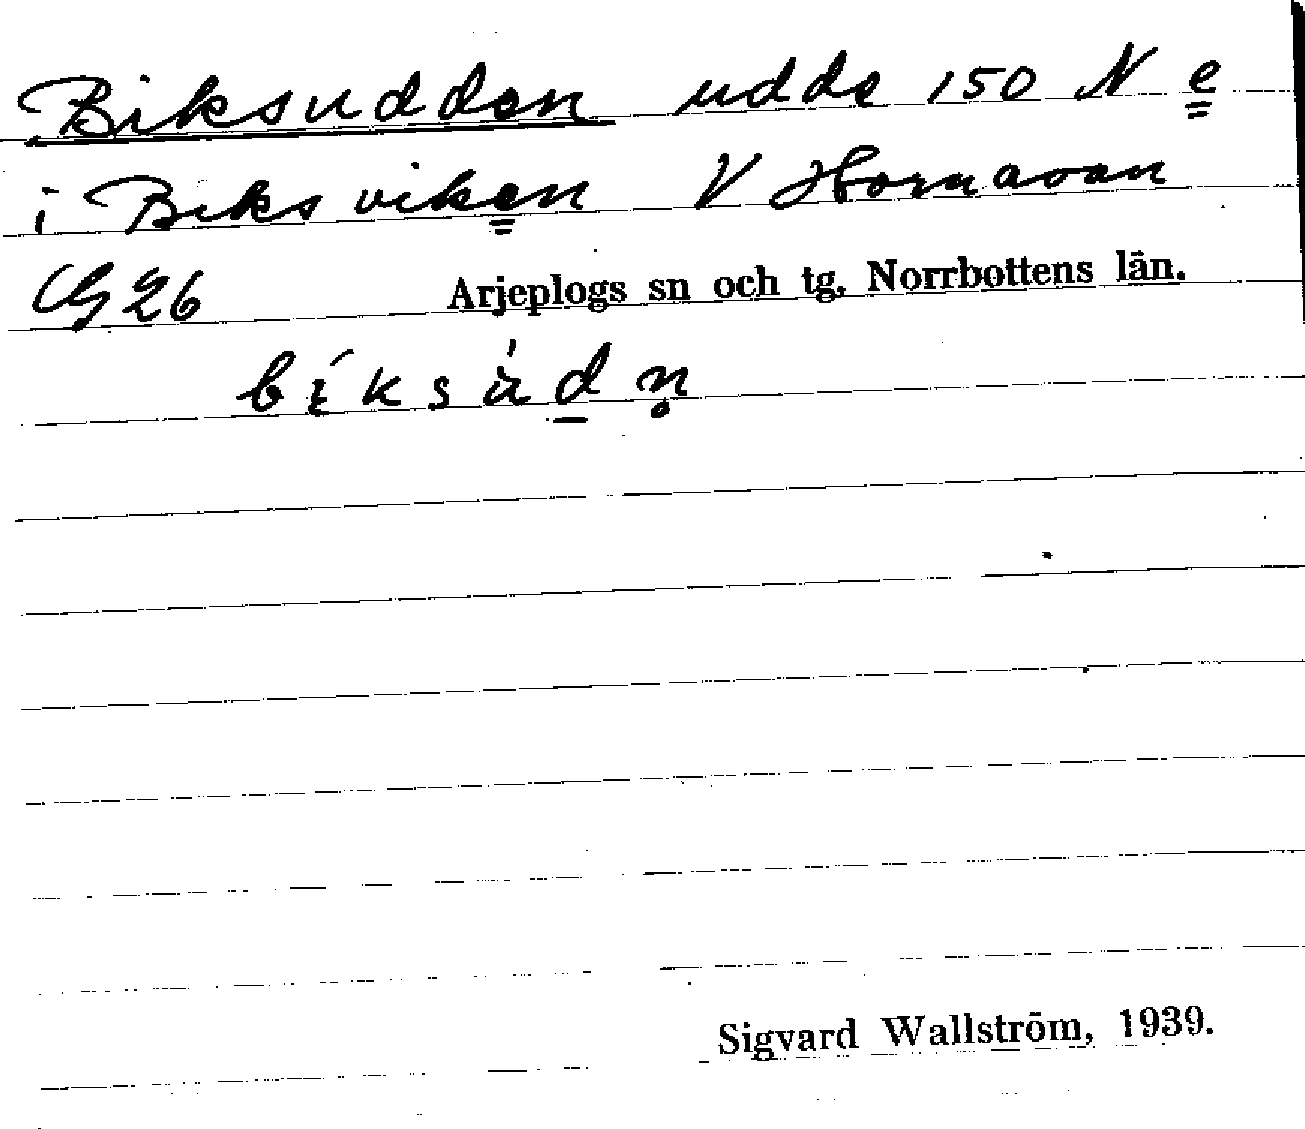 Biksudden udde 150 N e
i Biksviken V Hornavan
G26 Arjeplogs sn och tg. Norrbottens län.
bíksùdn̥
Sigvard Wallström, 1939.